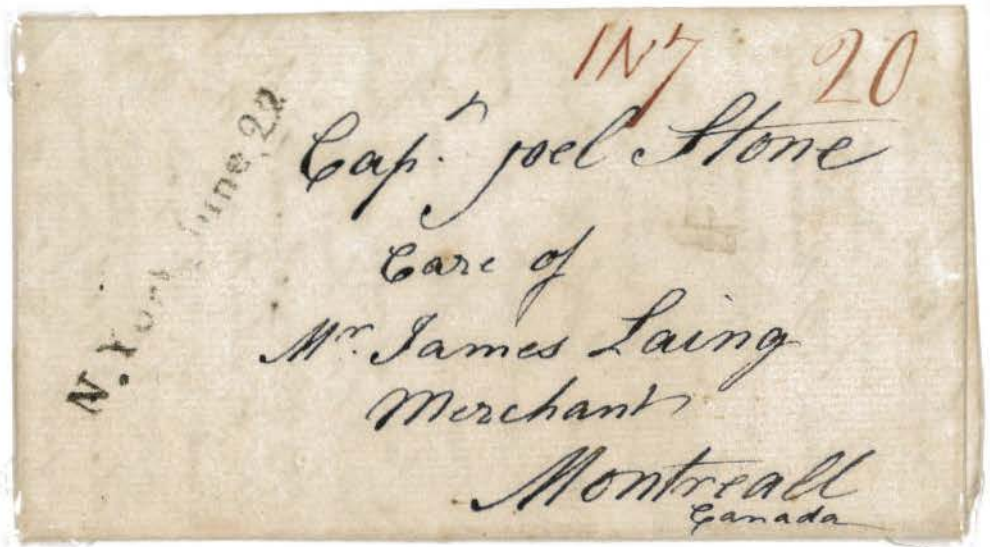 1N7 20
N. York June 22
Capn. joel Stone
Care of
Mr. James Laing
Merchant
Montreall
Canada